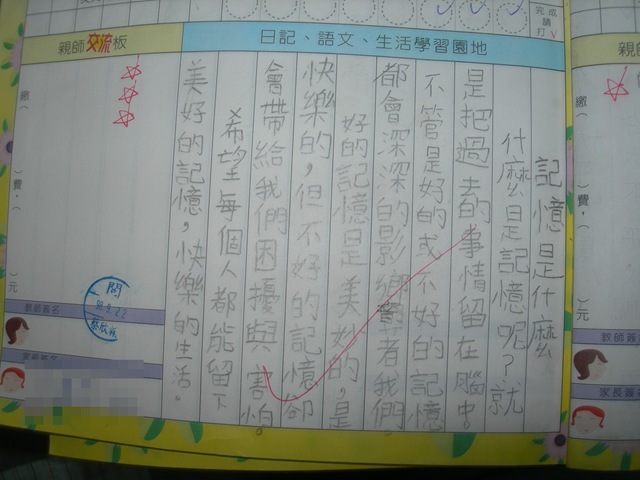 完成請打V
親師交流板
日記、語文、生活學習園地
記憶是什麼
什麼是記憶呢？就
是把過去的事情留在腦中。
不管是好的或不好的記憶
都會深深的影響者我們。
好的記憶是美妙的，是
快樂的，但不好的記憶卻
會帶給我們困擾與害怕。
希望每個人都能留下
美好的記憶，快樂的生活。
繳（
）費，（
）元
教師簽名
閱
9.22
親師
繳（
）費，（
）元
教師簽
家長簽